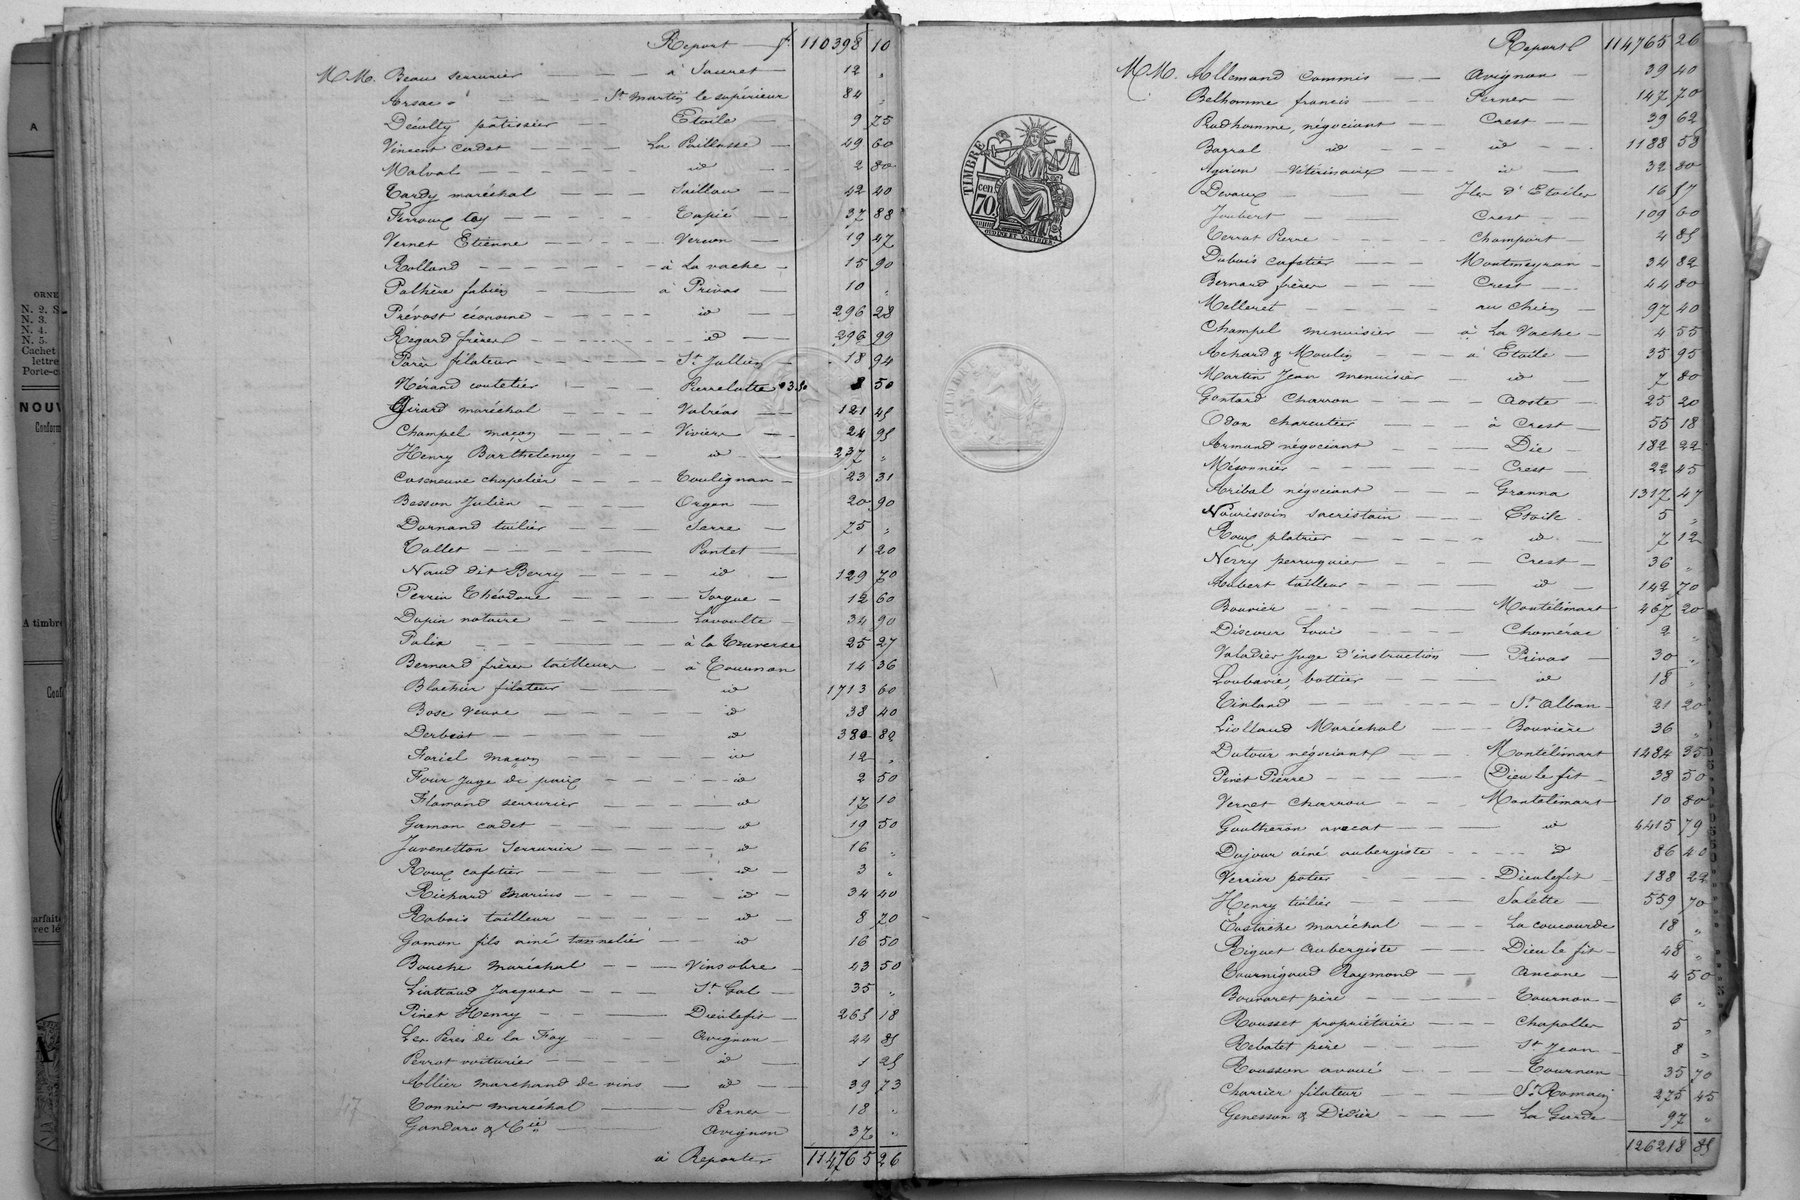 Report f. 110398 10
MM. Beau serrurier à Sauret 12 "
Arsac d° St Martin le supérieur 84 "
Décolty pâtissier Etoile 9 75
Vincent cadet La Paillasse 49 60
Malval id 2 80
Tardy maréchal Saillans 42 40
Ferroux 37 88
Vernet Etienne Vercon 19 47
Rolland à La vache 15 90
Palhère fabien à Privas 10 "
Prévost économe id 296 28
Régard frères id 296 99
Parès filateur St Jullien 18 94
Mérand coutelier Pierrelatte 8 50
Girard maréchal Valréas 121 45
Champel maçon Viviers 24 95
Henry Barthelemy id 237 "
Casneuve chapelier Taulignan 23 31
Besson Julien Orgon 20 90
Dornand tuilier Serre 75 "
Tallet Pontet 1 20
Naud dit Berry id 129 70
Perrin Théodore Sorgue 12 60
Dupin notaire Lavoulte 34 90
Palix à la Traverse 25 27
Bernard frères tailleurs à Tournon 14 36
Blachier filateur id 1713 60
Bosc veuve id 38 40
Derbeot id 380 82
Foriel maçon id 12 "
Four Juge de paix id 2 50
Flamand serrurier id 17 10
Gamon cadet id 19 50
Juvenetton Serrurier id 16 "
Roux cafetier id 3 "
Richard Marius id 34 40
Rabois tailleur id 8 70
Gamon fils ainé tonnelier id 16 50
Bouche maréchal Vinsobre 43 50
Liattaud Jacques St Gal 35 "
Pinet Henry Dieulefit 265 18
Les Pères de la Foy Avignon 22 85
Perrot voiturier id 1 25
Allier marchand de vins id 39 73
Tonnier maréchal Perner 18 "
Gandard & Cie Avignon 37 "
à Reporter 114765 26
Report 114765 26
MM. Allemand commis Avignon 39 40
Belhomme francis Perner 147 70
Prudhomme, négociant Crest 39 62
Barral id id 1188 58
Aguron Vétérinaire id 32 80
Devaux Iles d'Etoiles 16 57
Joubert Crest 109 60
Terrat Pierre Champort 4 85
Dubois cafetier Montmeyran 34 82
Bernard frères Crest 44 80
Melleret au Chien 97 40
Champel menuisier à La Vache 4 55
Achard & Moulin à Etoile 35 95
Martin Jean menuisier id 7 80
Gontard Charron Aoste 25 20
Odon charcutier à Crest 55 18
Armand négociant Die 182 22
Mésonnier Crest 22 45
Aribal négociant Granna 1317 47
Nourissoin sacristain Etoile 5 "
Roux platrier id 7 12
Nerry perruquier Crest 36 "
Aubert tailleur id 142 70
Bouvier Montélimart 467 20
Discour Louis Chomérac 2 "
Valadier Juge d'instruction Privas 30 "
Loubarié, bottier id 18 "
Tinland St Alban 21 20
Liolland Maréchal Bouvière 36 "
Dutour négociant Montélimart 1484 35
Pinet Pierre Dieu le fit 38 50
Vernet charron Montélimart 10 80
Gaultheron avocat id 4415 79
Dujour ainé aubergiste id 86 40
Verrier potier Dieulefit 188 22
Henry tuilier Salette 559 70
Eustache maréchal La coucourde 18 "
Riguet Aubergiste Dieu le fit 48 "
Tournigaud Raymond Ancone 4 50
Bouvaret père Tournon 6 "
Rousset propriétaire Chapotter 5 "
Rebatet père St Jean 8 "
Rousson avoué Tournon 35 70
Charier filateur St Romain 275 45
Genesson & Didier La Garde 97 "
126218 85
TIMBRE
cen
70.
A
ORNE
N. 2. S
N. 3.
N. 4.
N. 5.
Cachet
lettre
Porte-c
NOUV
Conform
A timbre
Conf
arfaite
vec le